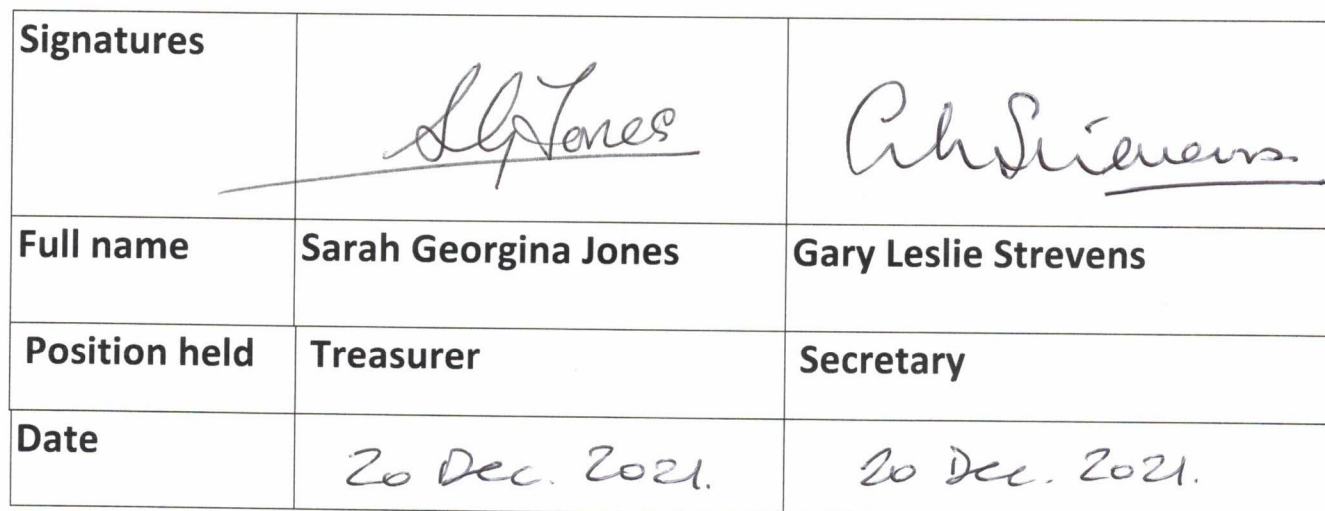 Signatures SGJones
Full name Sarah Georgina Jones Gary Leslie Strevens
Position held Treasurer Secretary
Date 20 Dec. 2021. 20 Dec. 2021.